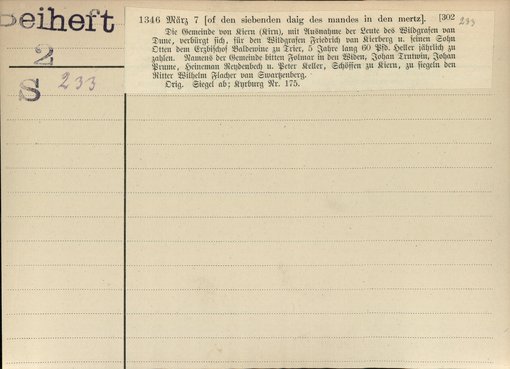 Beiheft
2
S 233
1346 März 7 [of den siebenden daig des mandes in den mertz]. [302
233
Die Gemeinde von Kiern (Kirn), mit Ausnahme der Leute des Wildgrafen van
Dune, verbürgt sich, für den Wildgrafen Friedrich van Kierberg u. seinen Sohn
Otten dem Erzbischof Baldewine zu Trier, 5 Jahre lang 60 Pfd. Heller jährlich zu
zahlen. Namens der Gemeinde bitten Folmar in den Widen, Johan Trutwin, Johan
Prume, Heineman Reydenbech u. Peter Keller, Schöffen zu Kiern, zu siegeln den
Ritter Wilhelm Flacher van Swartzenberg.
Orig. Siegel ab; Kyrburg Nr. 175.